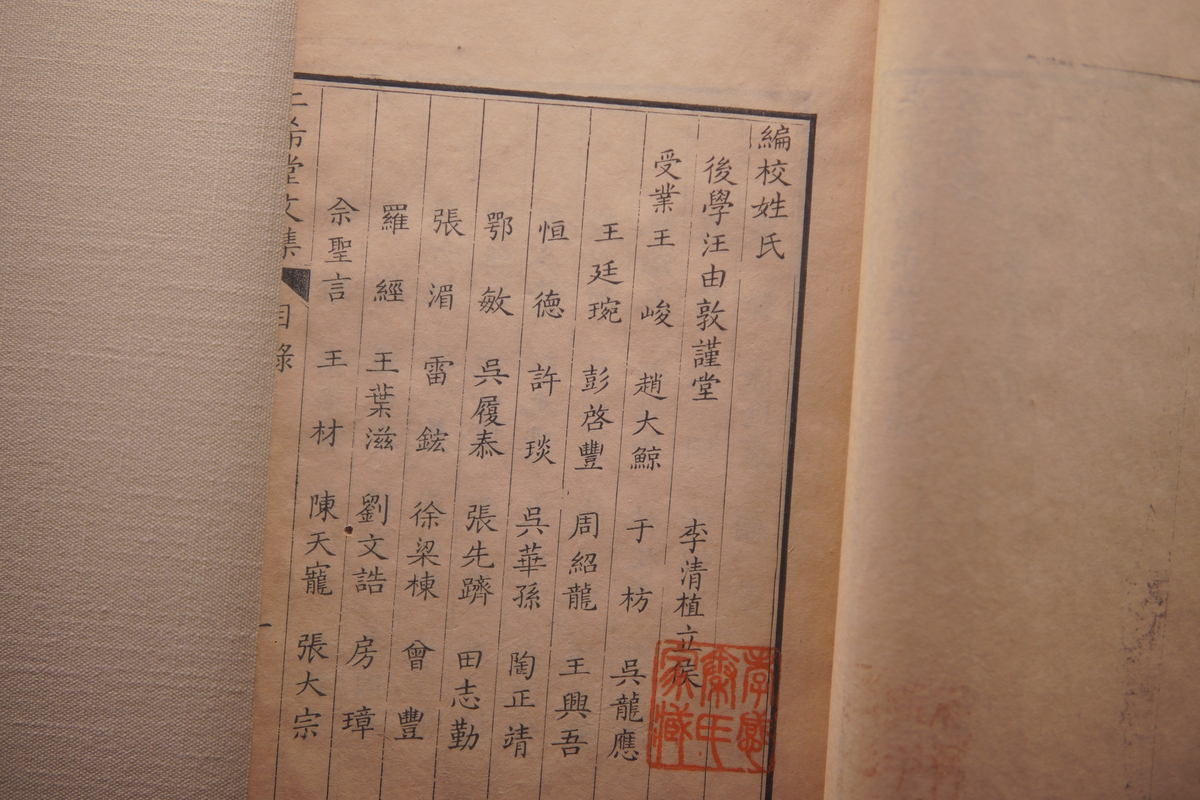 編校姓氏
後學汪由敦謹堂 李清植立侯
受業王峻 趙大鯨 于枋 吳龍應
王廷琬 彭啓豐 周紹龍 王興吾
恒德 許琰 吳華孫 陶正靖
鄂敏 吳履泰 張先躋 田志勤
張湄 雷鋐 徐梁棟 曾豐
羅經 王葉滋 劉文誥 房璋
佘聖言 王材 陳天寵 張大宗
二希堂文集 目錄 一
孝感
秦氏
家藏